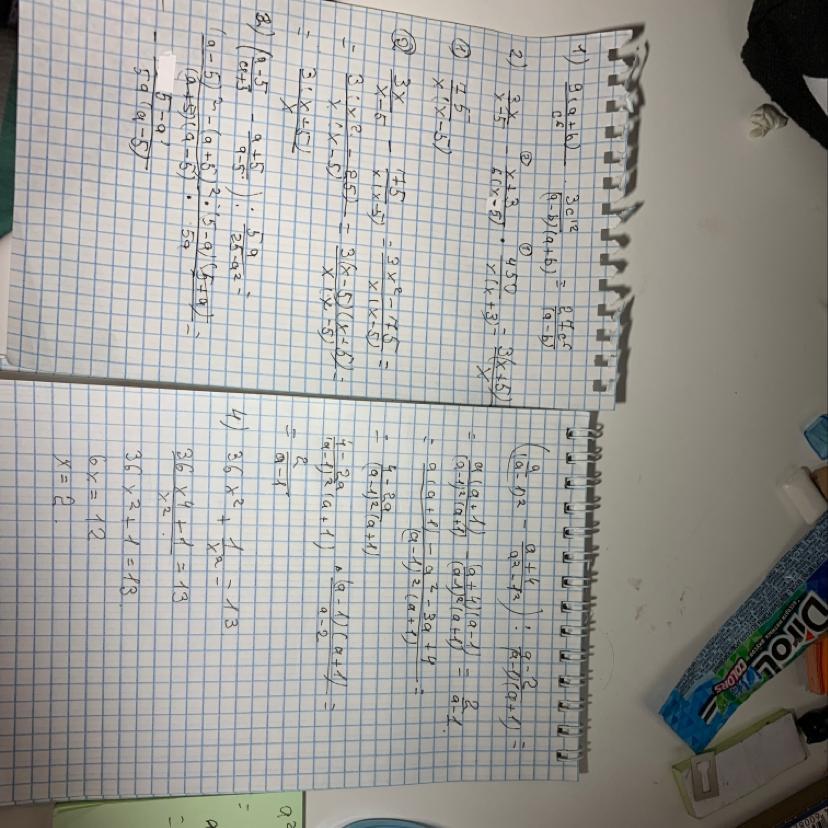 1) 9(a+b)/c⁶ · 3c¹²/(a-b)(a+b) = 27c⁶/(a-b)
2) 3x/x-5 - x+3/6(x-5) · 450/x(x+3) = 3(x+5)/x
① 75/x(x-5)
② 3x/x-5 - 75/x(x-5) = 3x²-75/x(x-5) =
= 3(x²-25)/x(x-5) = 3(x-5)(x+5)/x(x-5) =
= 3(x+5)/x
3) (a-5/a+5 - a+5/a-5) : 5a/25-a² =
(a-5)²-(a+5)²/(a+5)(a-5) · (5-a)(5+a)/5a =
(a/(a-1)² - a+4/a²-1²) : a-2/(a-1)(a+1) =
= a(a+1)/(a-1)²(a+1) - (a+4)(a-1)/(a-1)²(a+1) = 2/a-1
= a(a+1)-a²-3a+4/(a-1)²(a+1) =
= 4-2a/(a-1)²(a+1)
4-2a/(a-1)²(a+1) · (a-1)(a+1)/a-2 =
= 2/a-1
4) 36x² + 1/x² = 13
36x⁴+1/x² = 13
36x²+1=13
6x=12
x=2.
Dirol
COLORS
a²
=